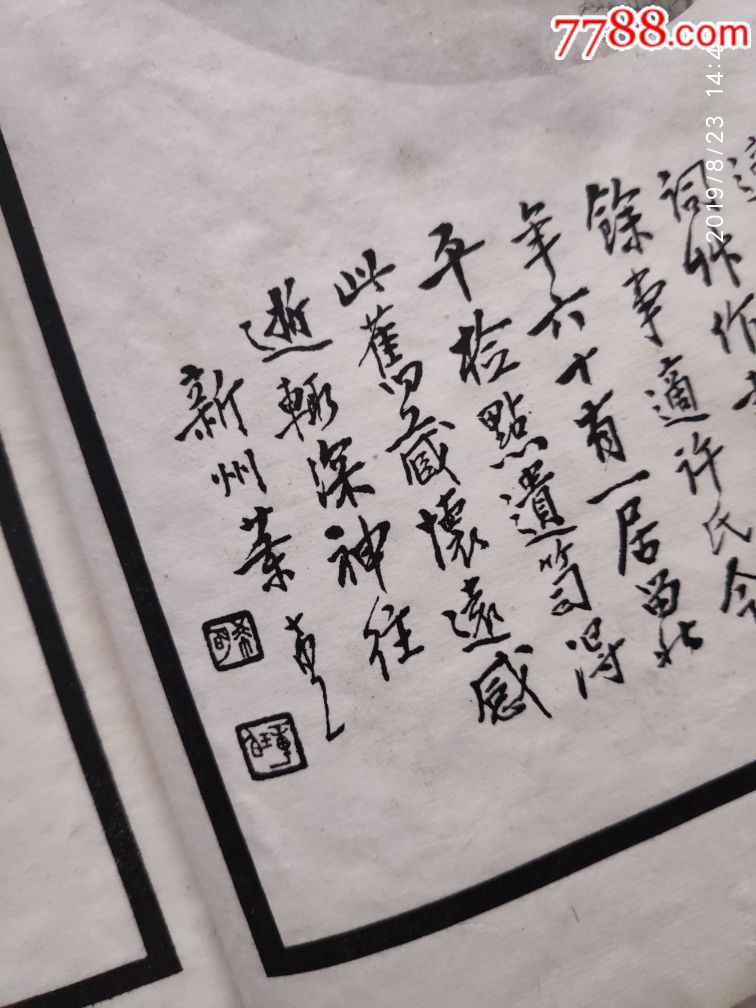 7788.com
2019/8/23 14:4
詞
餘事適許氏
年六十有一居留北
平檢點遺笥得
此舊藏懷遠感
逝輒深神往
新州葉